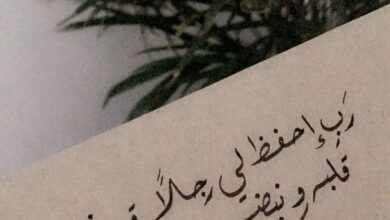 رَبِ إحفظ لي رجلاً
قَلبه و